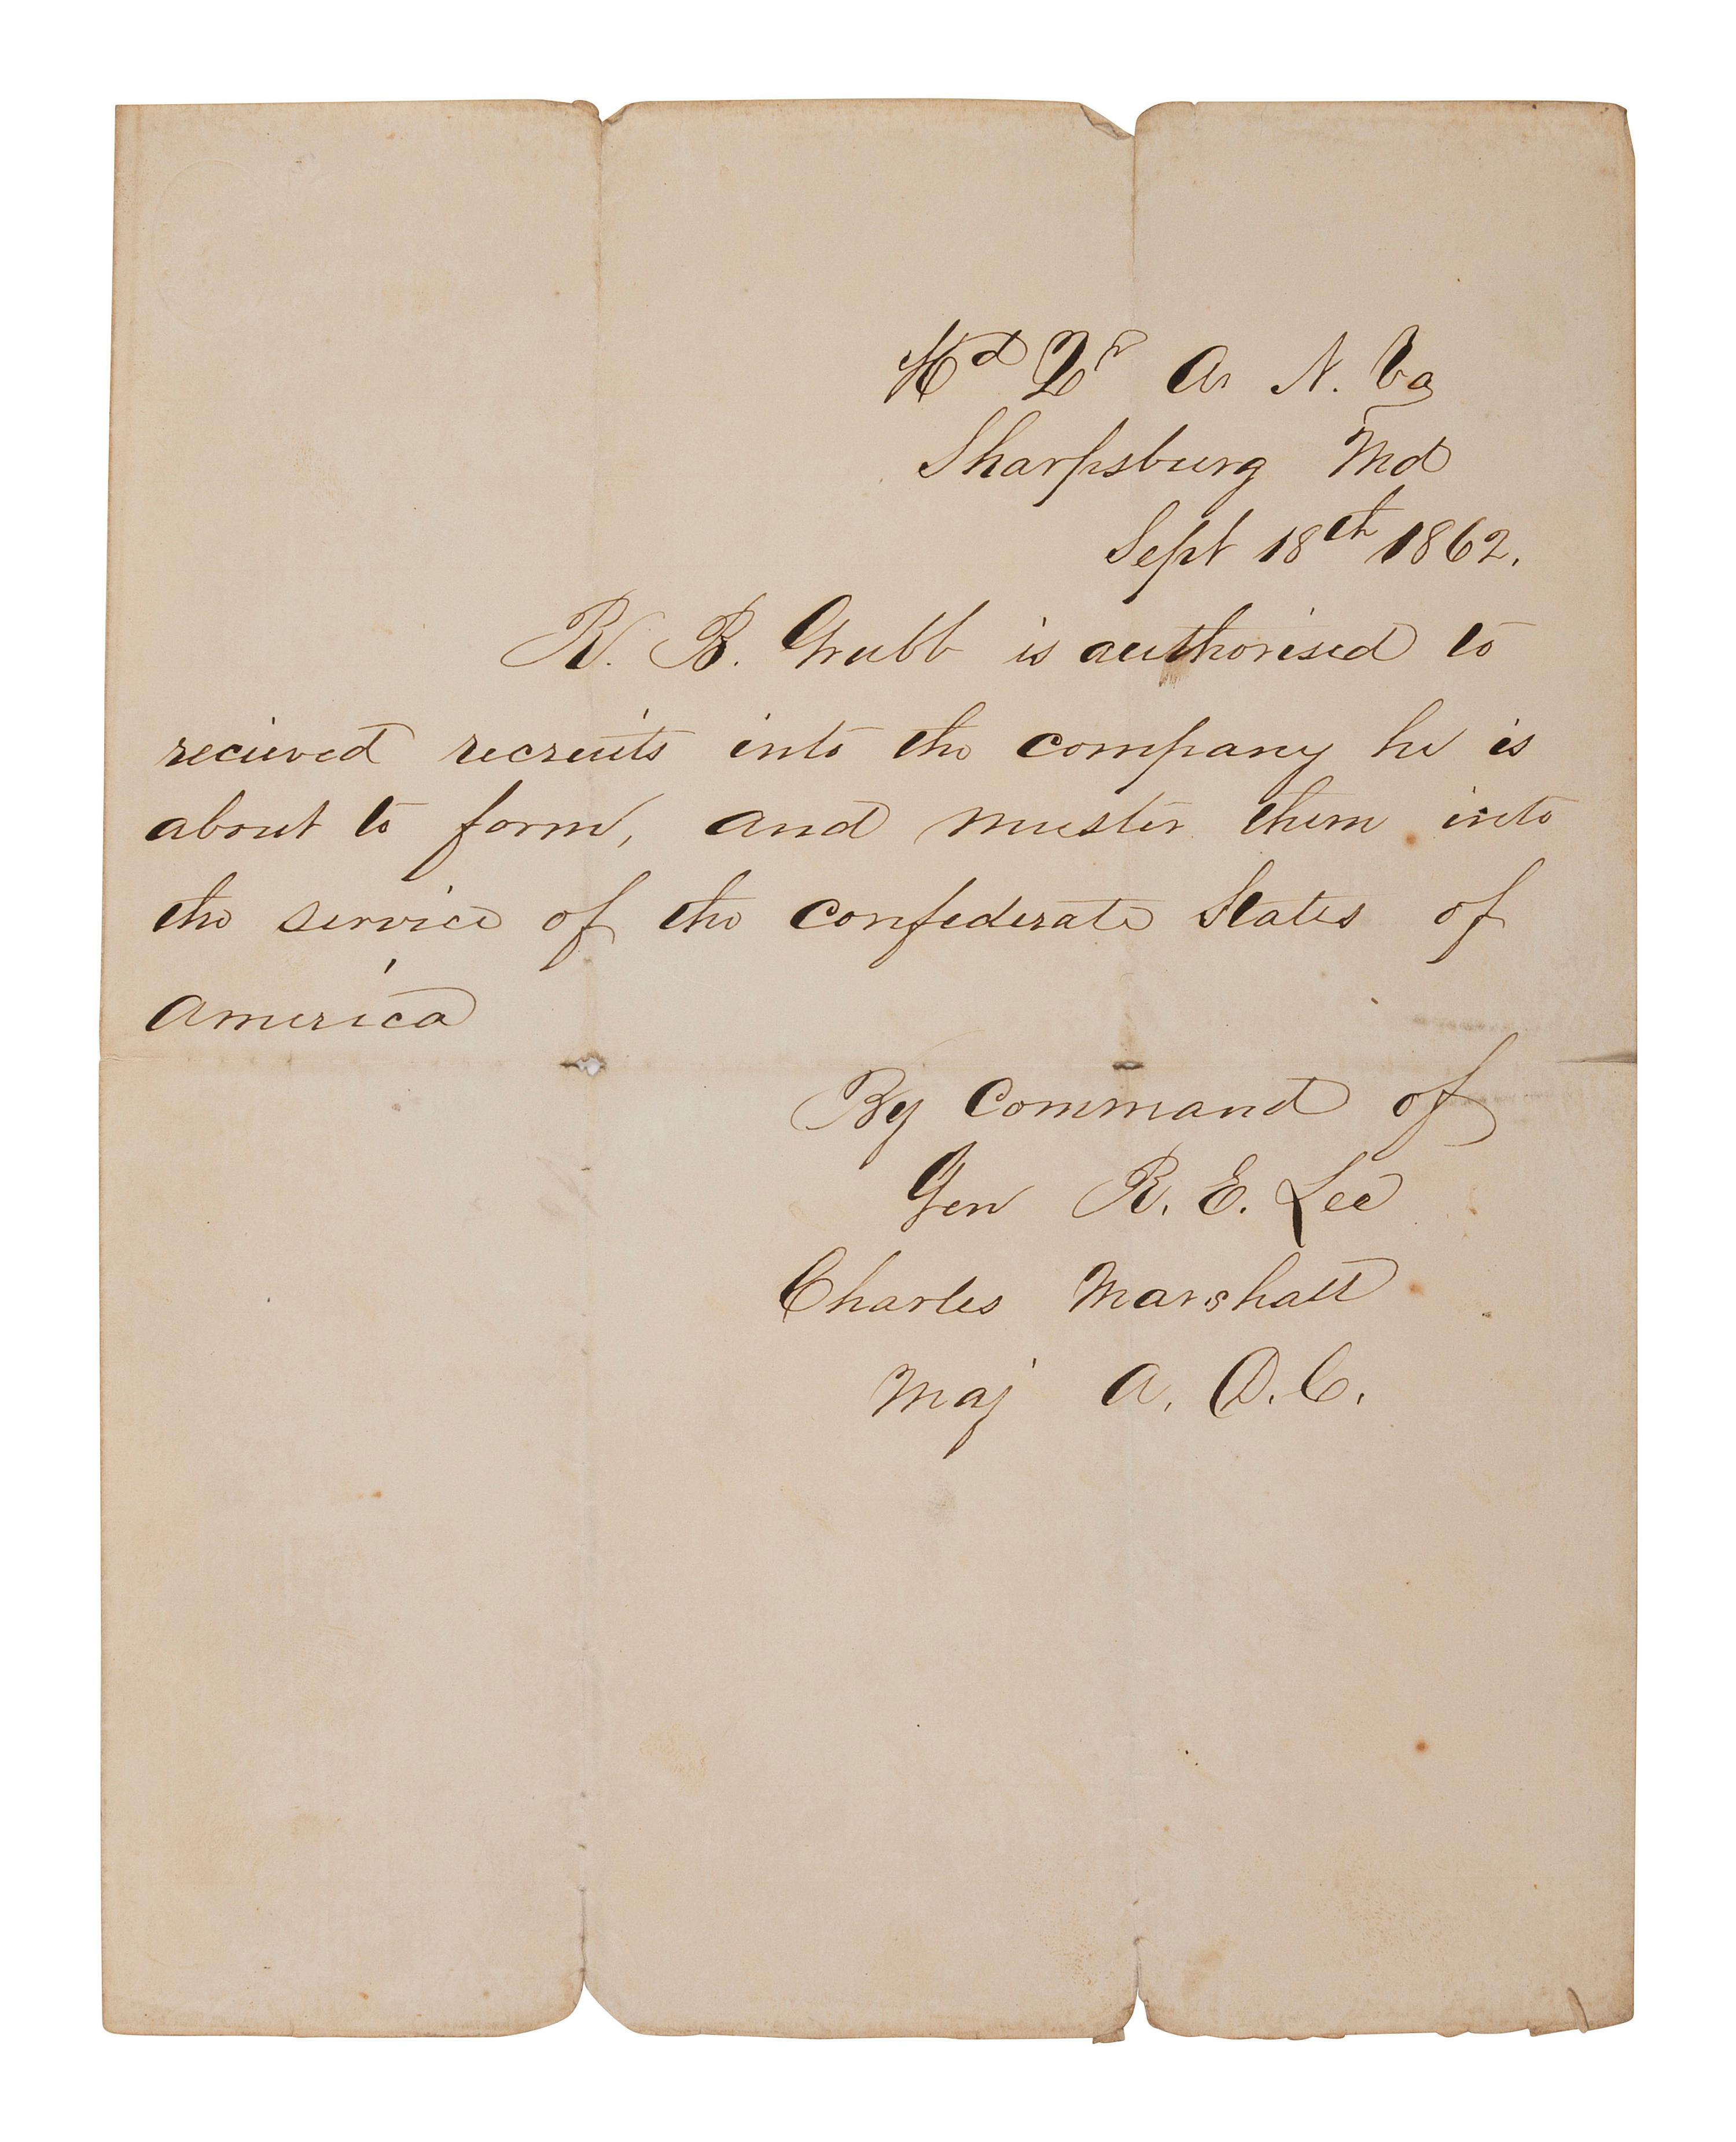 Hd Qr A. N. Va
Sharpsburg Md
Sept 18th 1862.
R. B. Grubb is authorised to
recieved recruits into the company he is
about to form, and muster them into
the service of the Confederate States of
America
By Command of
Gen R. E. Lee
Charles Marshall
Maj A. D. C.